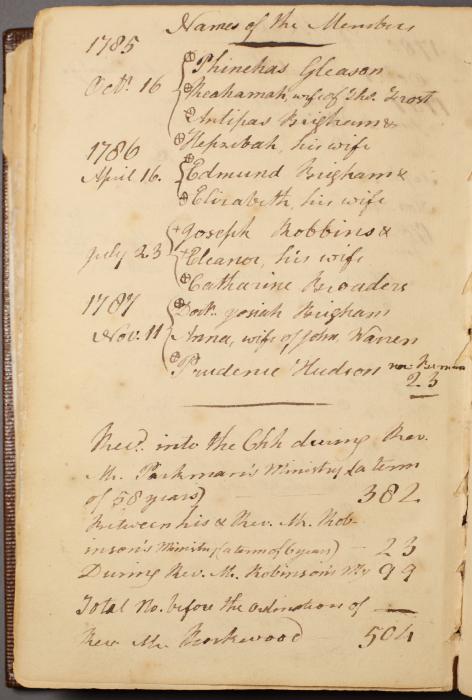 Names of the Members
1785
Phinehas Gleason
Octr. 16
Neahamah, wife of Ths. Frost
Antipas Brigham &
Hepzibah, his wife
1786
April 16.
Edmund Brigham &
Elizabeth, his wife
Joseph Robbins &
July 23
Eleanor, his wife
Catharine Broaders
1787
Doctr. Josiah Brigham
Nov. 11
Anna, wife of John Warren
Prudence Hudson now
23
Recd. into the Chh during Rev.
Mr. Parkman's Ministry (a term
of 58 years) 382
Between his & Rev. Mr. Rob-
inson's Ministry (a term of 6 years) - 23
During Rev. Mr. Robinson's My 99
Total No. before the ordination of
Rev. Mr. Rockwood 504